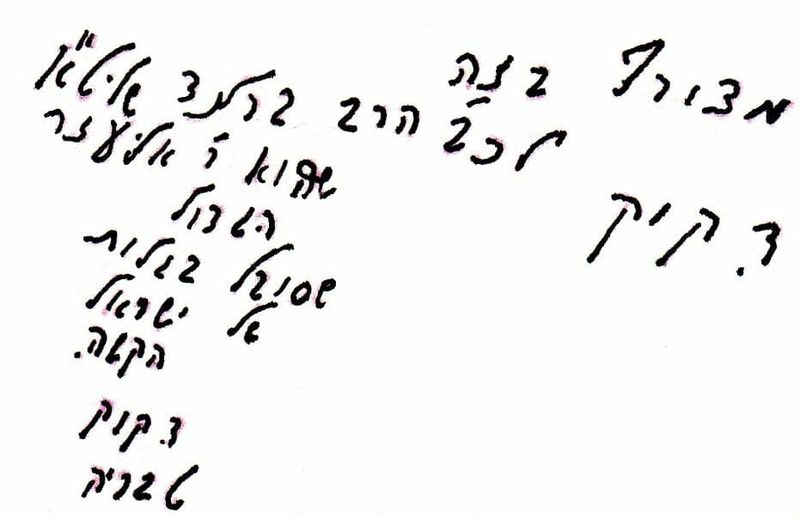 מצורף בזה
לכב' הרב ברלנד שליט"א
ד. קוק
שהוא ר' אליעזר
הגדול
שסובל בגלות
של ישראל
הקשה.
ד. קוק
טבריה